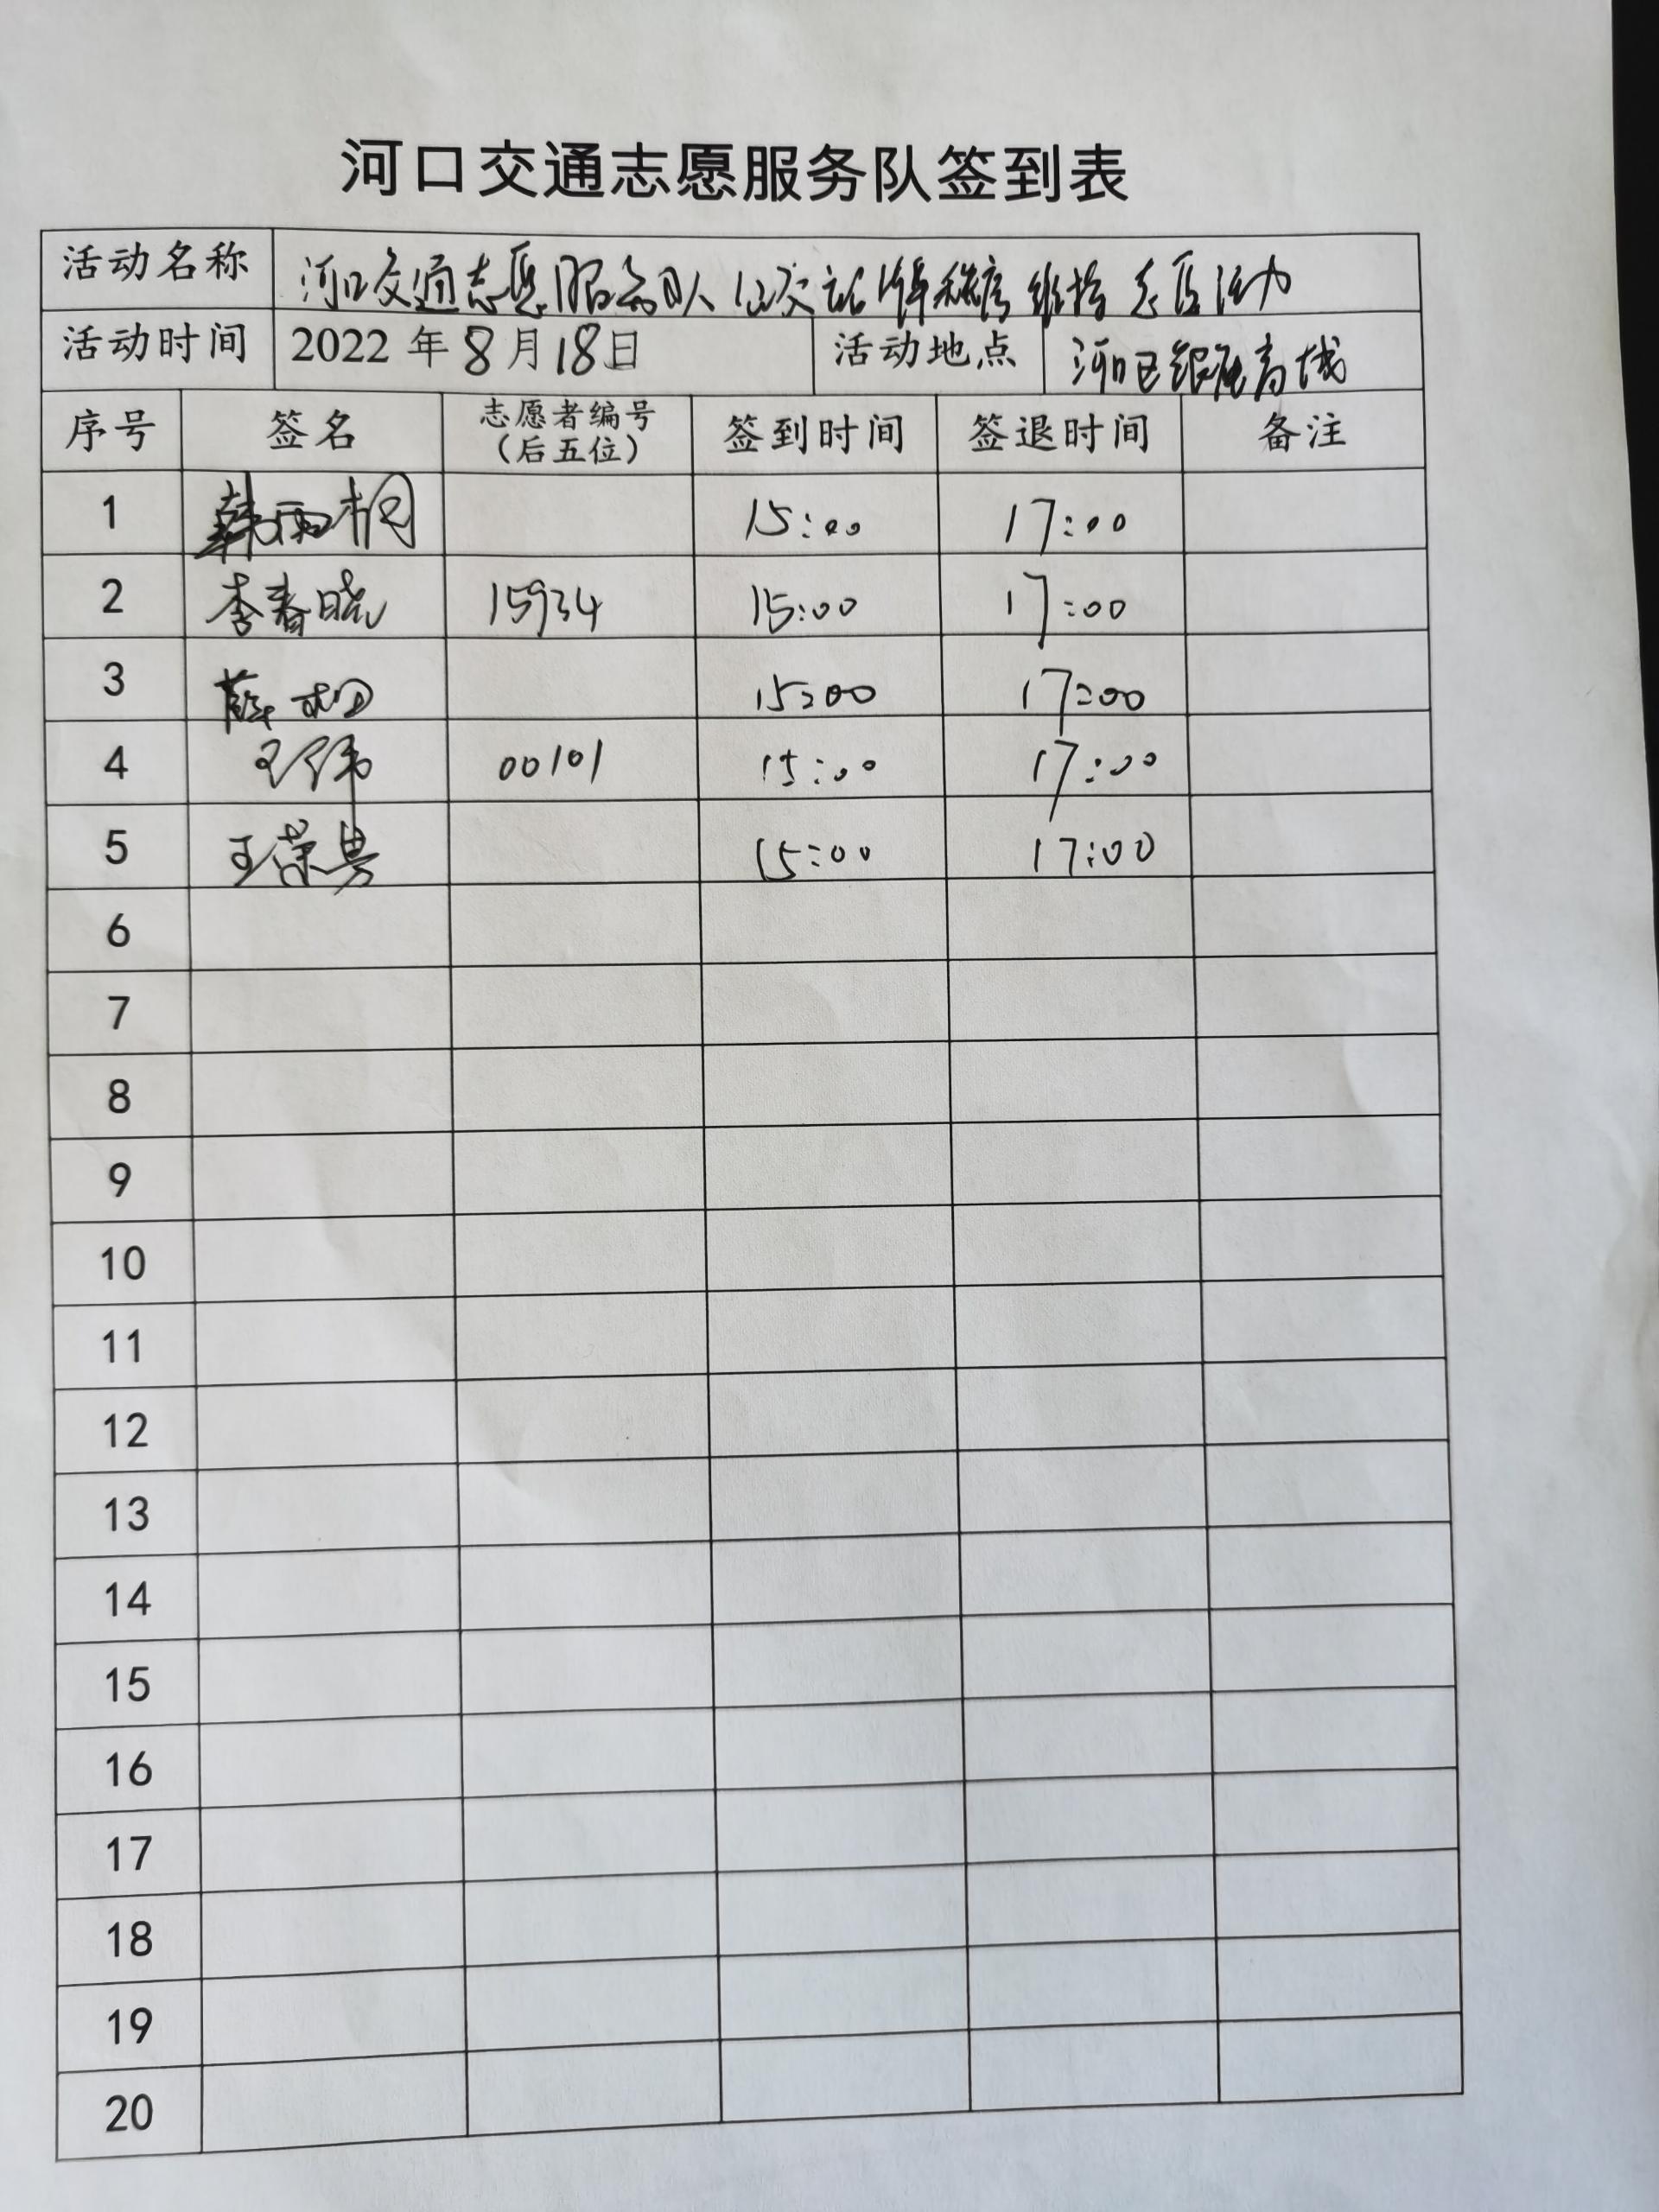 河口交通志愿服务队签到表
活动名称 河口交通志愿服务队公交站牌秩序维持志愿活动
活动时间 2022年8月18日 活动地点 河口区银座商城
序号 签名 志愿者编号（后五位） 签到时间 签退时间 备注
1 韩雨桐 15:00 17:00
2 李春晓 15934 15:00 17:00
3 薛 15:00 17:00
4 王伟 00101 15:00 17:00
5 王荣 15:00 17:00
6
7
8
9
10
11
12
13
14
15
16
17
18
19
20